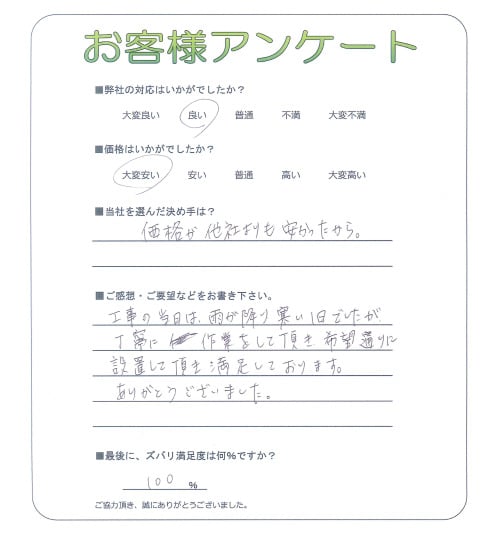 お客様アンケート
■弊社の対応はいかがでしたか？
大変良い 良い 普通 不満 大変不満
■価格はいかがでしたか？
大変安い 安い 普通 高い 大変高い
■当社を選んだ決め手は？
価格が他社よりも安かったから。
■ご感想・ご要望などをお書き下さい。
工事の当日は、雨が降り寒い1日でしたが
丁寧に 作業をして頂き、希望通りに
設置して頂き満足しております。
ありがとうございました。
■最後に、ズバリ満足度は何％ですか？
100 ％
ご協力頂き、誠にありがとうございました。